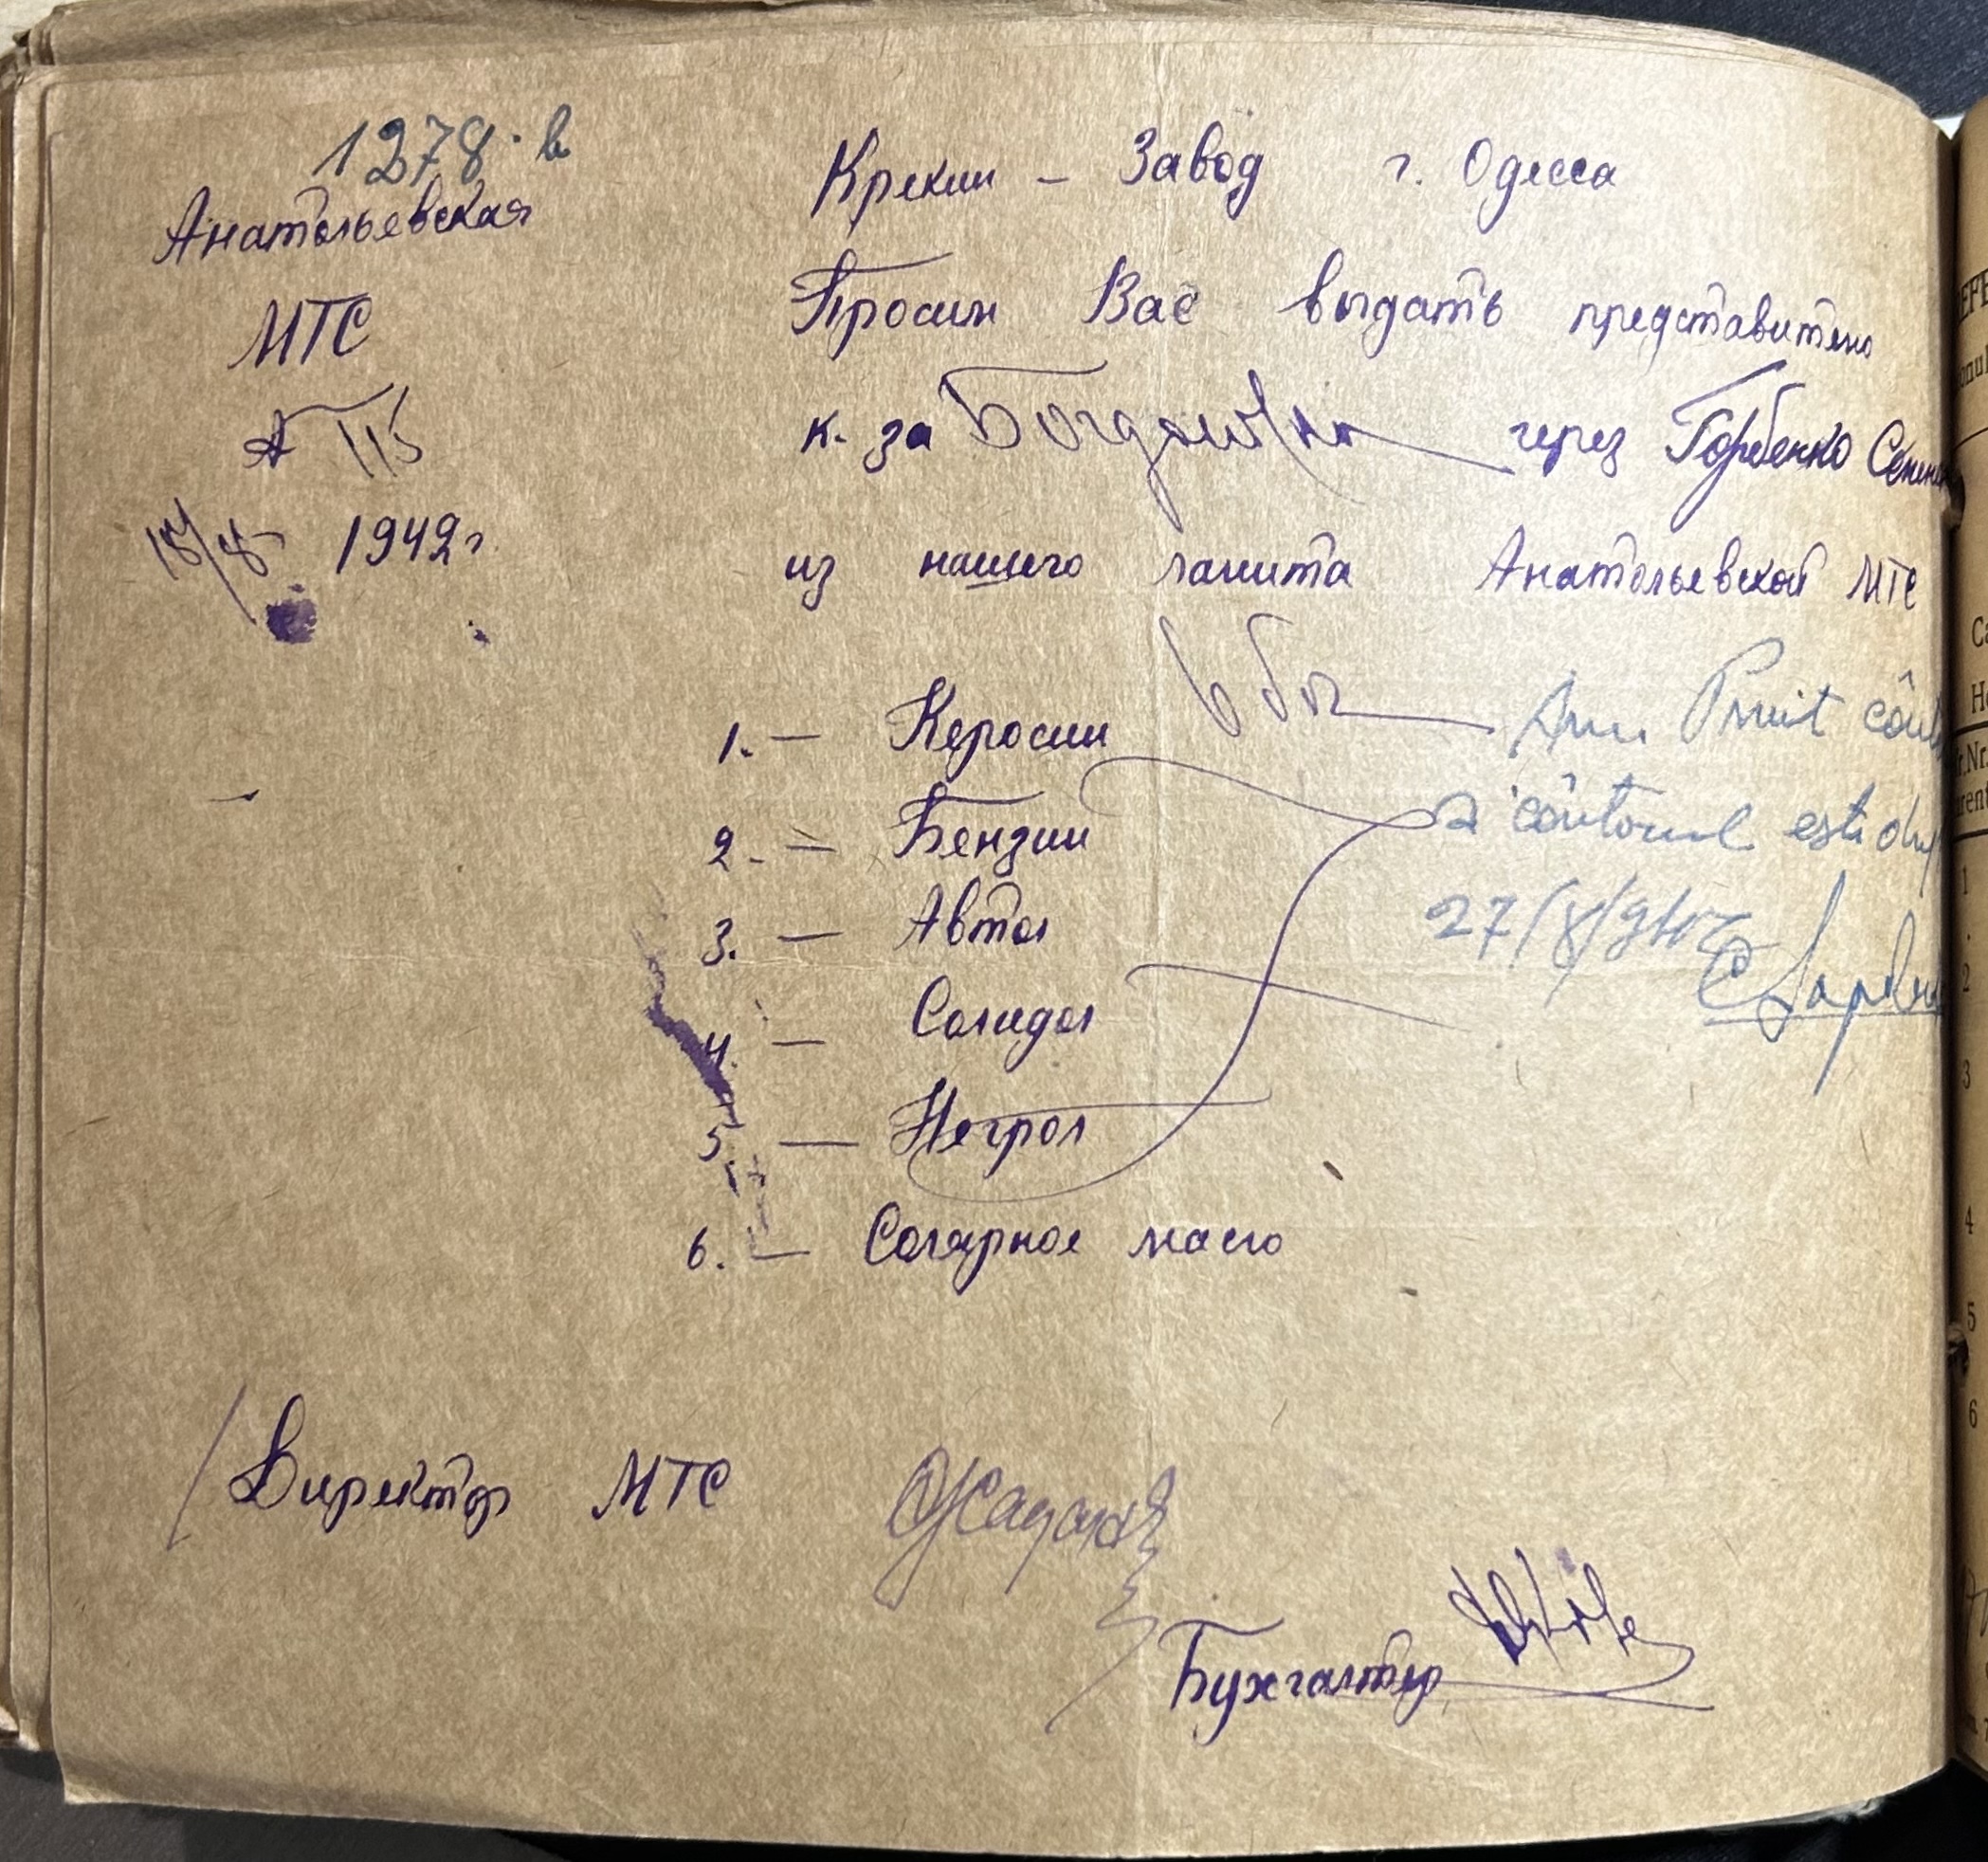 1278.
Анатольевская
МТС
115
18/8 1942г
Крекин - Завод г. Одесса
Просим Вас выдать представителю
к-за через Горбенко
из нашего лимита Анатольевской МТС
1. — Керосин
2. — Бензин
3. — Автол
4. — Солидол
5. — Негрол
6. — Солярное масло
Am Primit
contorul este
27/8/942
Директор МТС
Бухгалтер